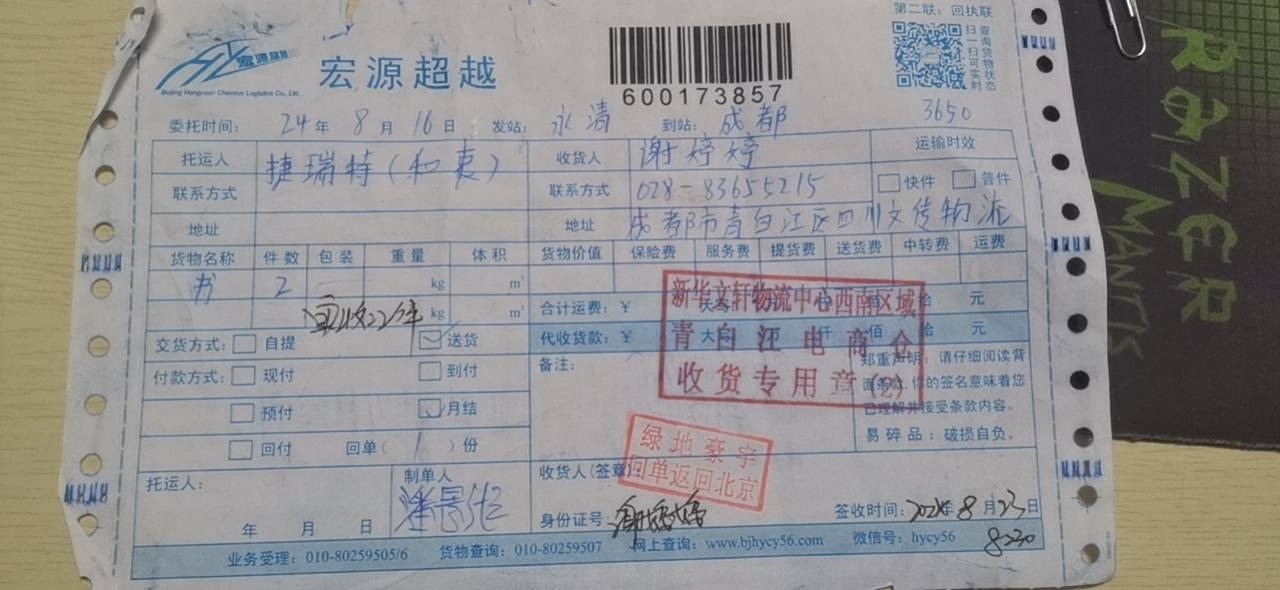 第二联：回执联
宏源超越
宏源超越
Beijing Hongyuan Chaoyue Logistics Co., Ltd.
600173857
扫一扫可实时
查询货物状态
3650
委托时间： 24 年 8 月 16 日 发站： 永清 到站： 成都
托运人 捷瑞特（和衷） 收货人 谢婷婷 运输时效
联系方式 联系方式 028-83655215 快件 普件
地址 地址 成都市青白江区四川文传物流
货物名称 件数 包装 重量 体积 货物价值 保险费 服务费 提货费 送货费 中转费 运费
书 2 kg m³
实收22件 kg m³ 合计运费：￥ 拾 元
交货方式： 自提 送货 代收货款：￥ 大写 万 仟 佰 拾 元
新华文轩物流中心西南区域
青白江电商仓
收货专用章(2)
付款方式： 现付 到付 备注：
郑重声明：请仔细阅读背
面条款，你的签名意味着您
已理解并接受条款内容。
易碎品：破损自负。
预付 月结
回付 回单（ 1 ）份
绿地豪宇
回单返回北京
托运人： 制单人 收货人(签章)：
年 月 日 身份证号： 谢婷婷 签收时间： 2024年 8 月 23 日
8:30
业务受理：010-80259505/6 货物查询：010-80259507 网上查询：www.bjhycy56.com 微信号：hycy56
RAZER
MANTIS